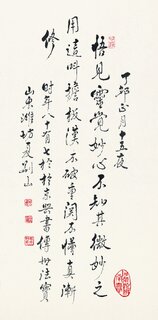 丁卯正月十五夜
悟見靈覺妙心不知其微妙之
用這叫擔板漢不破重関不懂真漸
修
時年八十有七於北京興書傳世法寶
山東濰坊夏荆山